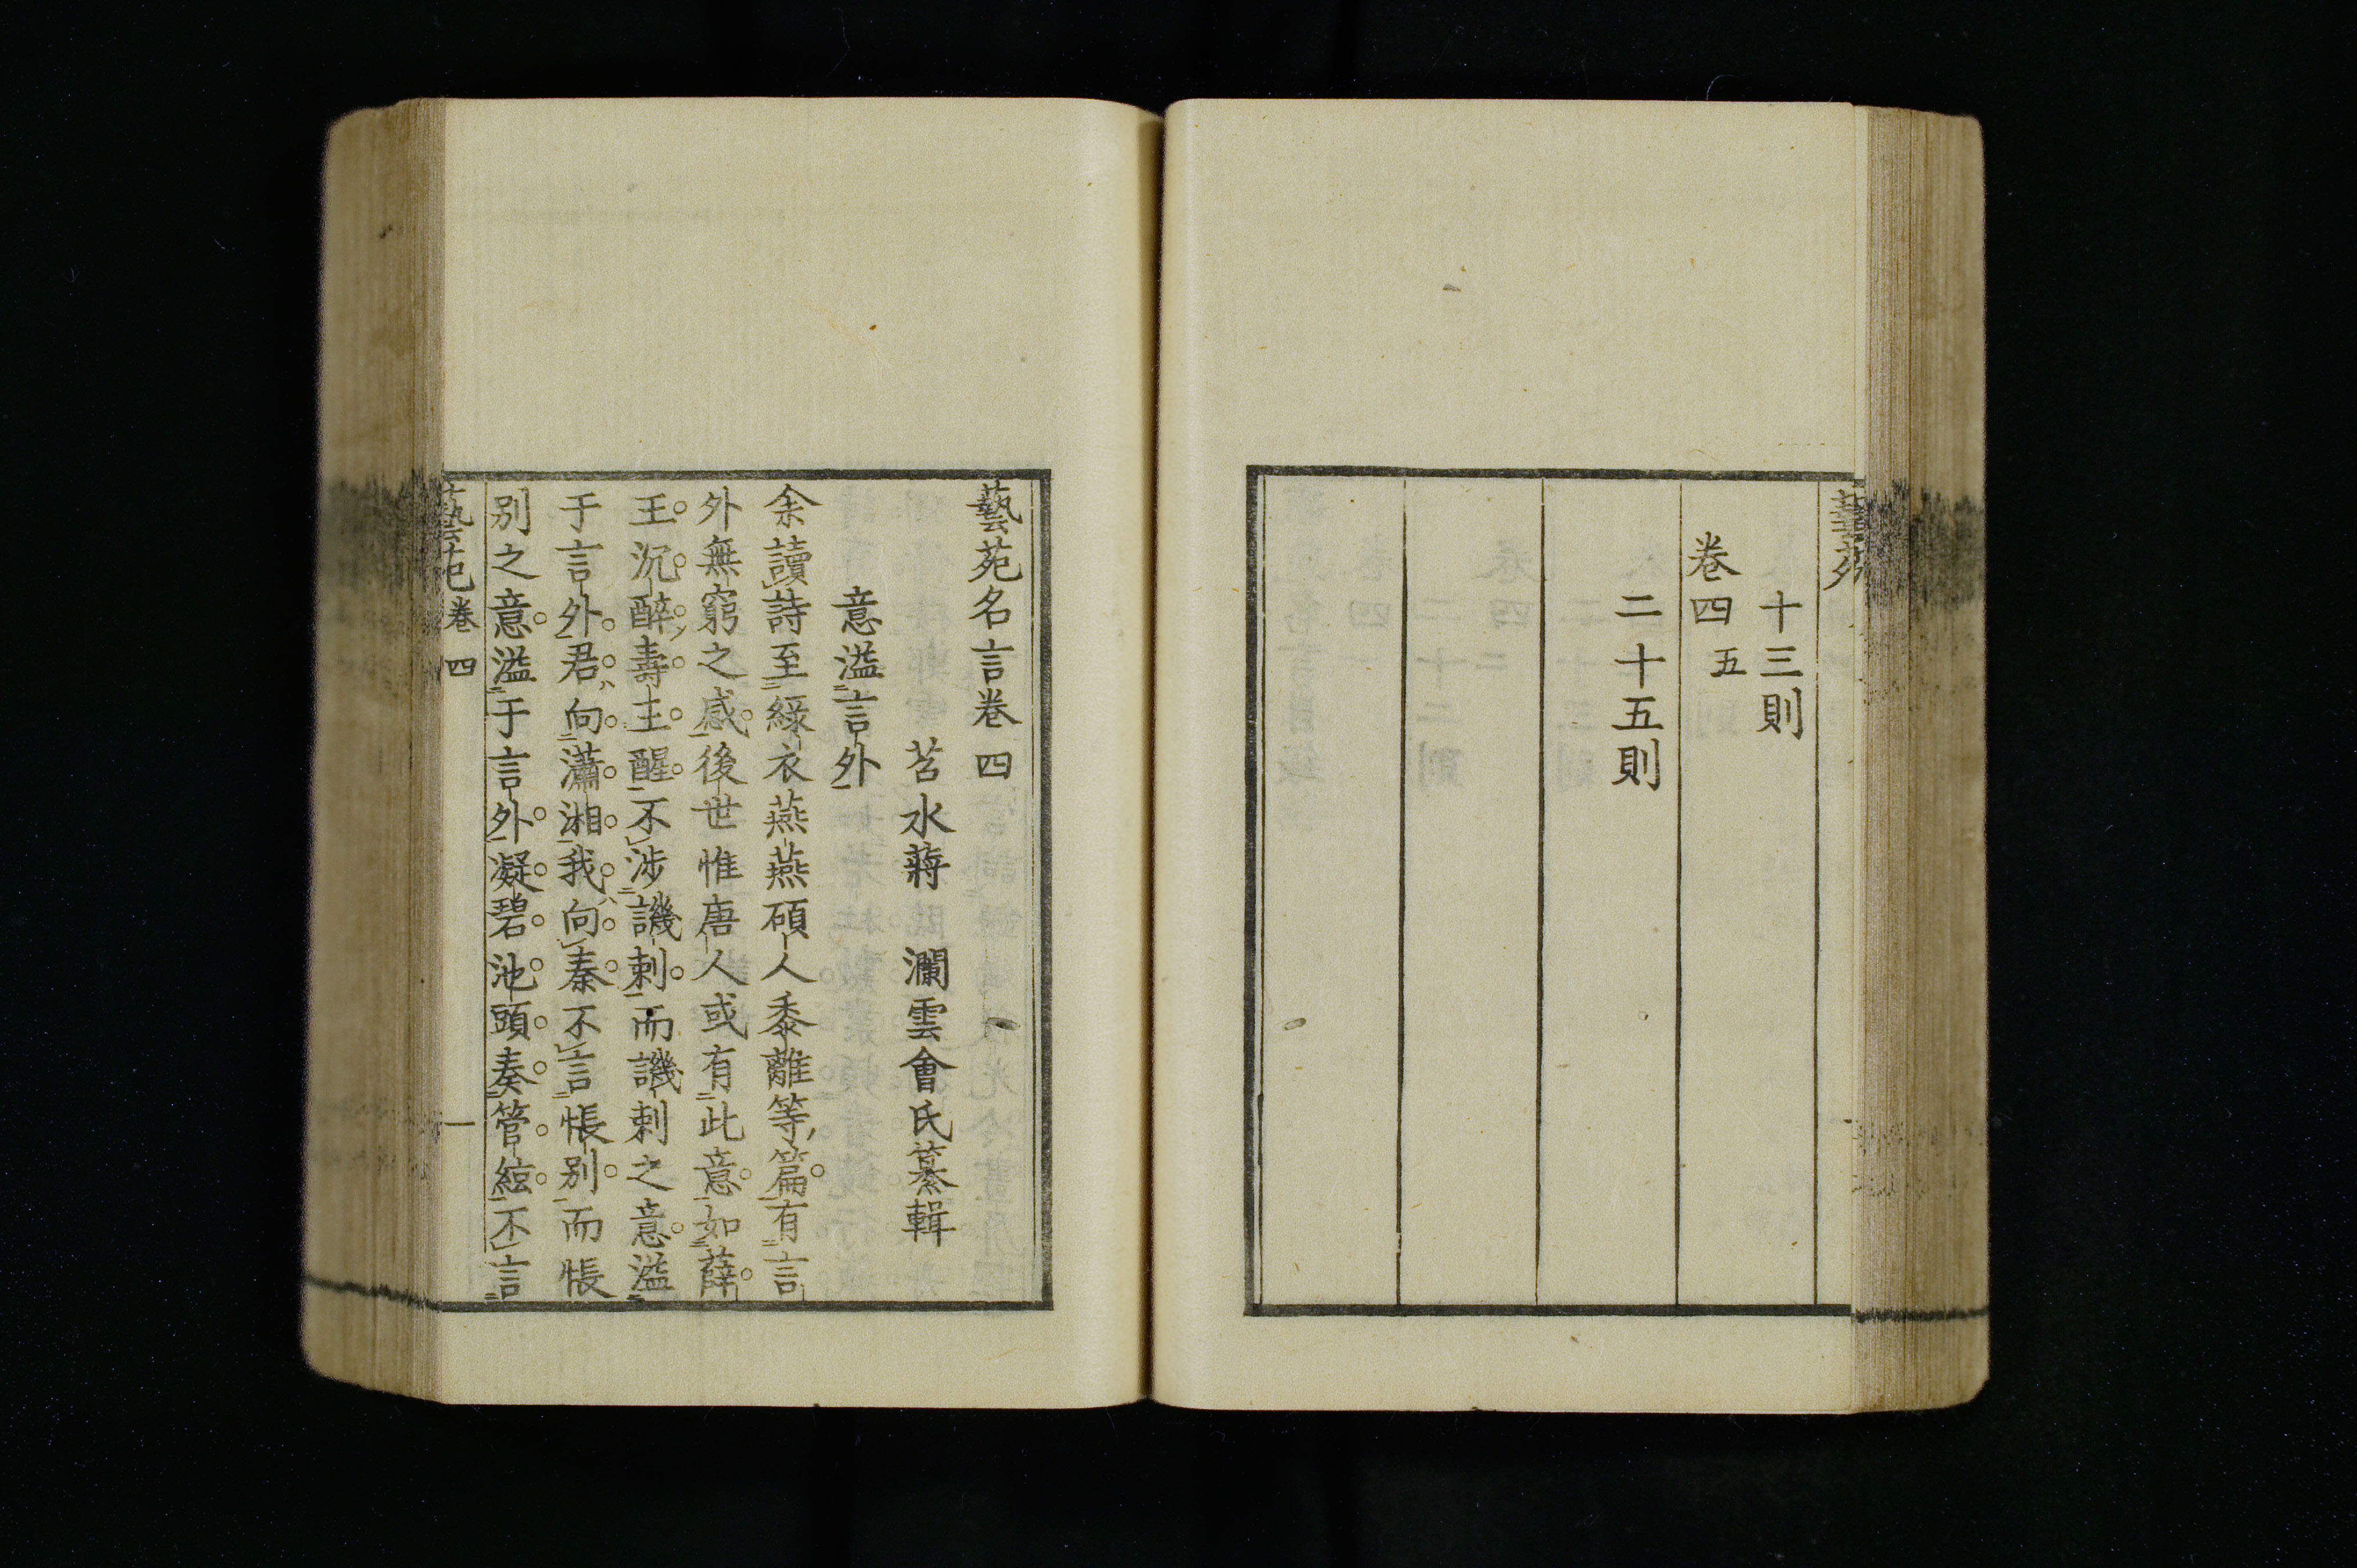 藝苑
十三則
卷四 五
二十五則
藝苑名言卷四
苕水蔣 瀾雲會氏纂輯
意溢言外
余讀詩至綠衣燕燕碩人黍離等篇有言
外無窮之感後世惟唐人或有此意如薛
王沉醉壽王醒不涉譏刺而譏刺之意溢
于言外君向瀟湘我向秦不言悵别而悵
别之意溢于言外凝碧池頭奏管絃不言
藝苑卷四 一